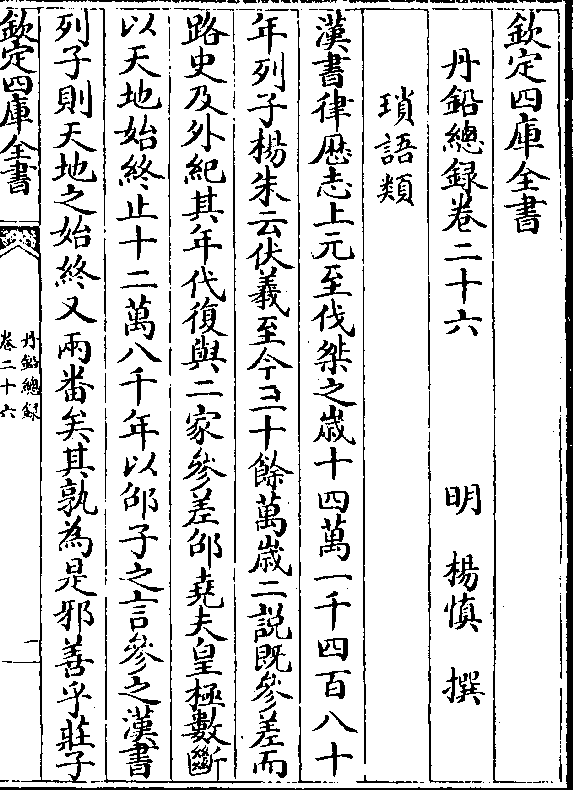 欽定四庫全書
丹鉛總録卷二十六
明 楊慎 撰
瑣語類
漢書律厯志上元至伐桀之歲十四萬一千四百八十
年列子楊朱云伏羲至今三十餘萬歲二説既參差而
路史及外紀其年代復與二家參差邵堯夫皇極數斷
以天地始終止十二萬八千年以邵子之言參之漢書
列子則天地之始終又兩番矣其孰為是邪善乎莊子
欽定四庫全書
丹鉛總録
卷二十六
一